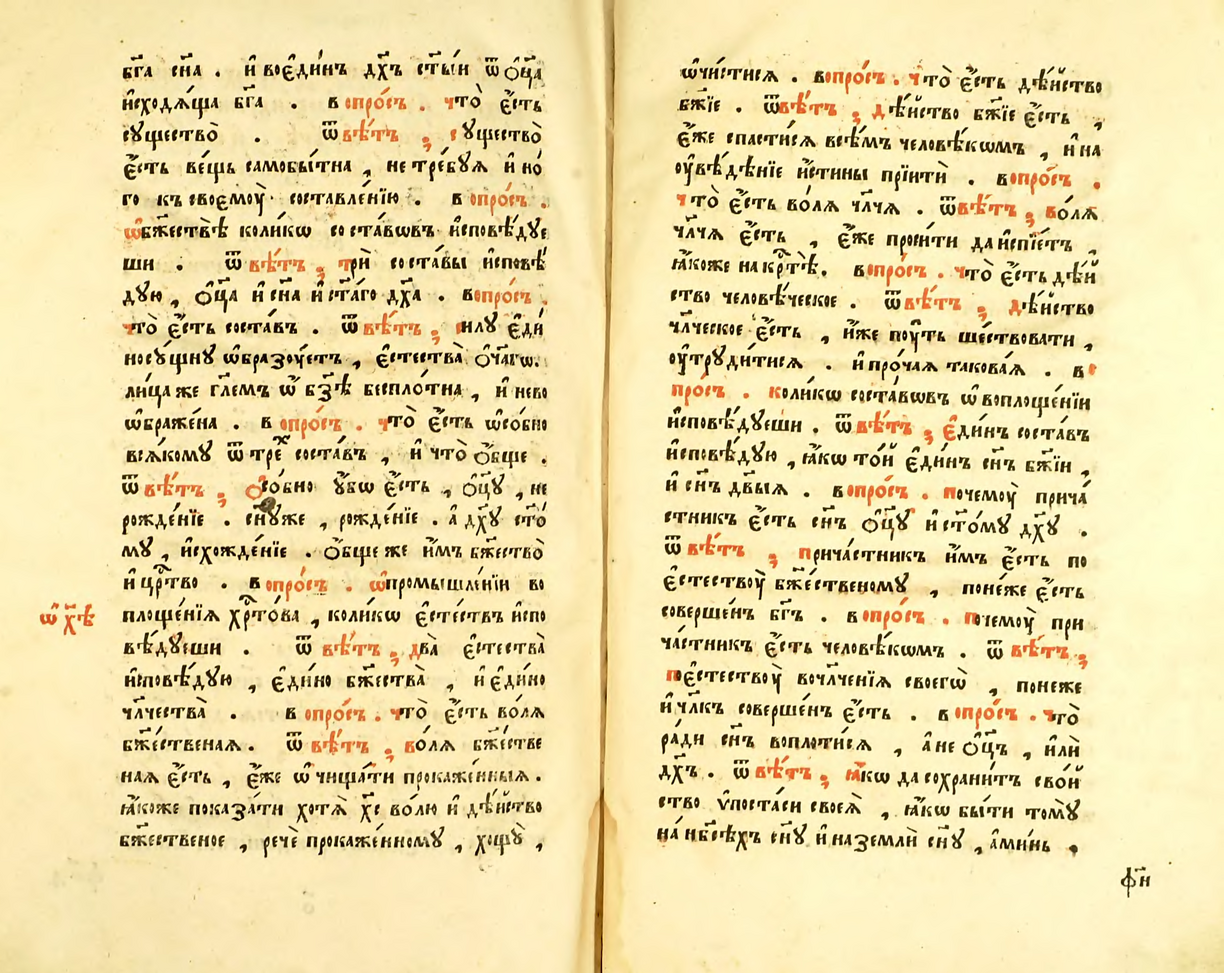 бг҃а сн҃а . и҆ во є҆ди́нъ дх҃ъ ст҃ы́и ѿ ѻ҆ц҃а
и҆сходѧ́ща бг҃а . вопро́съ . что̀ є҆́сть
сꙋщество̀ . ѿвѣ́тъ , сꙋщество̀
є҆́сть ве́щь самобы́тна , не тре́бꙋѧ и҆но́
го къ своемоу̀ составле́нїю . вопро́съ .
ѡ҆бж҃ествѣ̀ коли́кѡ соста́вѡвъ и҆сповѣ́дꙋе
ши . ѿвѣ́тъ , трѝ соста́вы и҆сповѣ́
дꙋю , ѻ҆ц҃а и҆ сн҃а и҆ ст҃а́го дх҃а . вопро́съ .
что̀ є҆́сть соста́въ . ѿвѣ́тъ , силꙋ є҆ди
носꙋ́щнꙋ ѡ҆бразоу́етъ , є҆стества̀ ѻ҆́чагѡ.
лица́ же гл҃емъ ѡ҆ бз҃ѣ беспло́тна , и҆ нево
ѡ҆браже́на . вопро́съ . что̀ є҆́сть ѡ҆со́бно
всѧ́комꙋ ѿ тре́х соста́въ , и҆ что̀ ѻ҆́бще .
ѿвѣ́тъ , ѻ҆со́бно ᲂу҆́бѡ є҆́сть , ѻ҆ц҃ꙋ , не
рожде́нїе . сн҃ꙋ же , рожде́нїе . а҆ дх҃ꙋ ст҃о́
мꙋ , и҆схожде́нїе . ѻ҆́бще же и҆́мъ бж҃ество̀
и҆ црⷭ҇тво . вопро́съ . ѡ҆промы́шленїи во
ѡ҆ хⷭ҇ѣ
площе́нїѧ хрⷭ҇то́ва , коли́кѡ є҆сте́ствъ и҆спо
вѣ́дꙋеши . ѿвѣ́тъ , два̀ є҆стества̀
и҆сповѣ́дꙋю , є҆ди́но бж҃ества̀ , и҆ є҆ди́но
чл҃чества̀ . вопро́съ . что̀ є҆́сть во́лѧ
бж҃е́ственаѧ . ѿвѣ́тъ , во́лѧ бж҃е́стве
наѧ є҆́сть , є҆́же ѡ҆чища́ти прокаже́нныѧ .
ꙗ҆́коже показа́ти хотѧ̀ хⷭ҇ во́лю и҆ дѣ́йство
бж҃е́ственое , речѐ прокаже́нномꙋ , хощꙋ̀ ,
ѡ҆чи́стисѧ . вопро́съ . что̀ є҆́сть дѣ́йство
бж҃їе . ѿвѣ́тъ , дѣ́йство бж҃їе є҆́сть ,
є҆́же спасти́сѧ всѣ́мъ человѣ́кѡмъ , и҆ на
ᲂу҆вѣ́дѣнїе и҆́стины прїитѝ . вопро́съ .
что̀ є҆́сть во́лѧ чл҃чѧ . ѿвѣ́тъ , во́лѧ
чл҃чѧ є҆́сть , є҆́же проси́ти да и҆спїе́тъ ,
ꙗ҆́коже на крⷭ҇тѣ̀. вопро́съ . что̀ є҆́сть дѣ́й
ство человѣ́ческое . ѿвѣ́тъ , дѣ́йство
чл҃ческое є҆́сть , и҆́же поу́ть ше́ствовати ,
ᲂу҆трꙋди́тисѧ . и҆ про́чаѧ такова́ѧ . во
про́съ . коли́кѡ соста́вѡвъ ѡ҆ воплоще́нїи
и҆сповѣ́дꙋеши . ѿвѣ́тъ , є҆ди́нъ соста́въ
и҆сповѣ́дꙋю , ꙗ҆́кѡ то́и є҆ди́нъ сн҃ъ бж҃їи ,
и҆ сн҃ъ дв҃ыѧ . вопро́съ . почемоу̀ прича́
стникъ є҆́сть сн҃ъ ѻ҆ц҃ꙋ и҆ ст҃о́мꙋ дх҃ꙋ .
ѿвѣ́тъ , прича́стникъ и҆́мъ є҆́сть по
є҆стествоу̀ бж҃е́ственомꙋ , поне́же є҆́сть
соверше́нъ бг҃ъ . вопро́съ . почемоу̀ при
ча́стникъ є҆́сть человѣ́кѡмъ . ѿвѣ́тъ ,
поє҆стествоу̀ вочл҃че́нїѧ своегѡ̀ , поне́же
и҆ чл҃къ соверше́нъ є҆́сть . вопро́съ . что̀
ра́ди сн҃ъ воплоти́сѧ , а҆ не ѻ҆ц҃ъ , и҆лѝ
дх҃ъ . ѿвѣ́тъ , ꙗ҆́кѡ да сохрани́тъ сво́й
ство ѵ҆поста́си своеѧ̀ , ꙗ҆́кѡ бы́ти томꙋ̀
на́ нб҃сѣхъ сн҃ꙋ и҆ на землѝ сн҃ꙋ , а҆ми́нь .
ф҃и